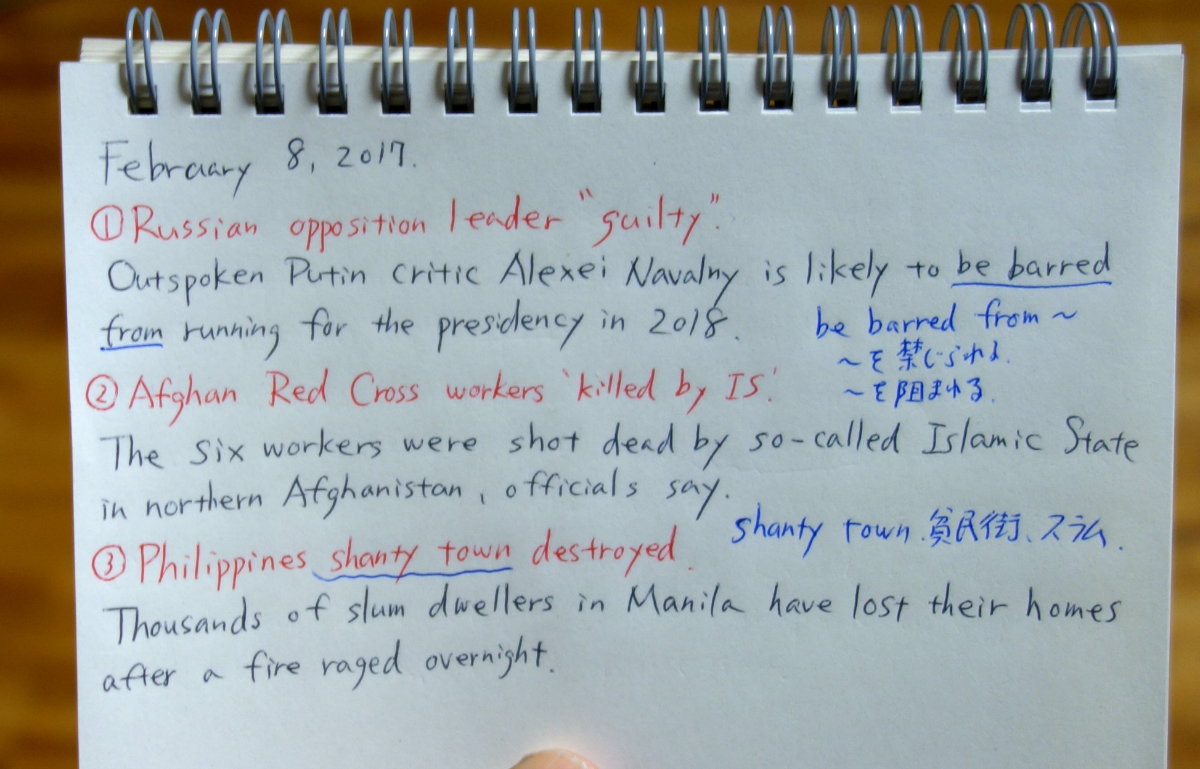 February 8, 2017.
① Russian opposition leader "guilty".
Outspoken Putin critic Alexei Navalny is likely to be barred
from running for the presidency in 2018.
be barred from ~
~を禁じられる.
~を阻まれる.
② Afghan Red Cross workers 'killed by IS'.
The six workers were shot dead by so-called Islamic State
in northern Afghanistan, officials say.
shanty town.貧民街、スラム.
③ Philippines shanty town destroyed.
Thousands of slum dwellers in Manila have lost their homes
after a fire raged overnight.